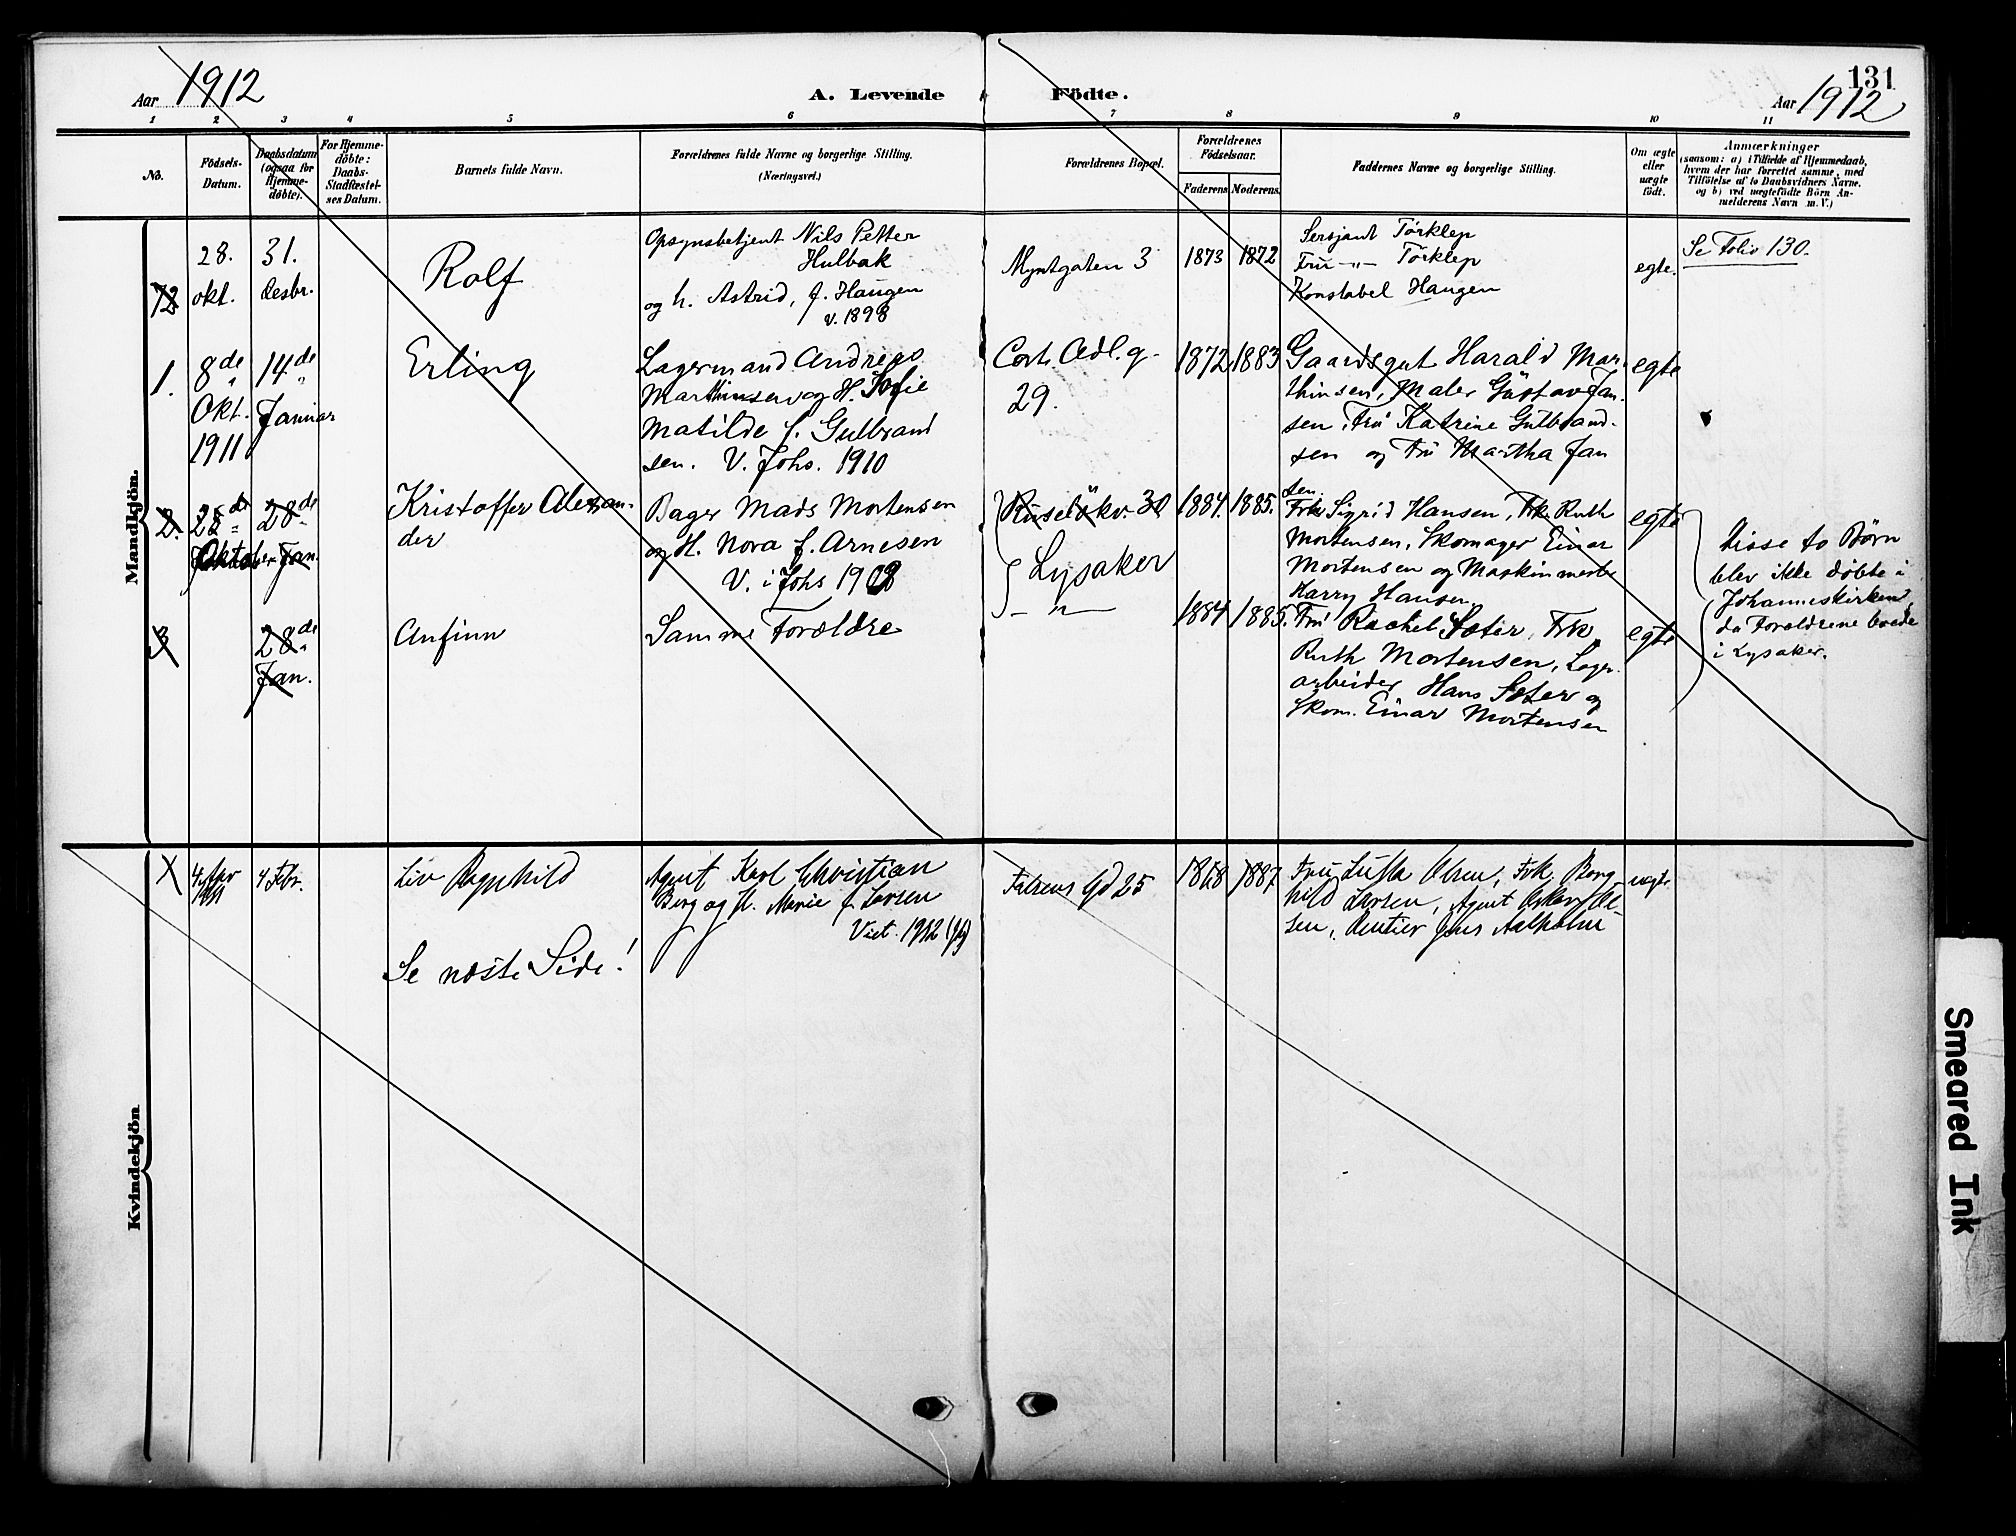 131
Aar 1912
A. Levende Födte.
Aar 1912
1 2 3 4 5 6 7 8 9 10 11
No.
Födsels-
Datum.
Daabsdatum
(ogsaa for
Hjemme-
döbte).
For Hjemme-
döbte:
Daabs-
Stadfæstel-
ses Datum.
Barnets fulde Navn.
Forældrenes fulde Navne og borgerlige Stilling.
(Næringsvei.)
Forældrenes Bopæl.
Forældrenes
Födselsaar.
Faderens Moderens.
Faddernes Navne og borgerlige Stilling.
Om ægte
eller
uægte
født.
Anmærkninger
(saasom: a) i Tilfælde af Hjemmedaab,
hvem der har forrettet samme, med
Tilføielse af to Daabsvidners Navne.
og b) ved uægtefödte Börn An-
melderens Navn m. V.)
Mandkjön.
72
28.
okt.
31.
desbr.
Rolf
Opsynsbetjent Nils Petter
Hulbak
og h. Astrid, f. Haugen
v. 1898
Myntgaten 3
1873
1872
Sersjant Törklep
Fru -"- Törklep
Konstabel Haugen
egte.
Se Folio 130.
1.
8de
Okt.
1911
14de
Januar
Erling
Lagermand Andreas
Marthinsen og H. Sofie
Matilde f. Gulbrand
sen. V. Johs. 1910
Cort. Adl. g.
29.
1872
1883
Gaardsgut Harald Mar-
thinsen, Maler Gustav Jan-
sen, Fru Katrine Gulbrand-
sen og Fru Martha Jan
sen
egte
2.
Oktober
28de
Jan.
Kristoffer Alexan-
der
Bager Mads Mortensen
og H. Nora f. Arnesen
V. i Johs 1908
Ruselökv. 30
Lysaker
1884.
1885.
Frk Sigrid Hansen, Frk. Ruth
Mortensen, Skomager Einar
Mortensen og Maskinmester
Harry Hansen
egte
Disse to Børn
blev ikke døbte i
Johanneskirken,
da Forældrene boede
i Lysaker.
3
28de
Jan.
Anfinn
Samme Forældre
- " -
1884
1885.
Fru Rachel Sæter, Frk
Ruth Mortensen, Lager-
arbeider Hans Sæter og
Skom. Einar Mortensen
egte
Kvindekjön.
4 Febr.
Liv Ragnhild
Agent Karl Christian
Berg og H. Marie f. Larsen
Viet. 1912
25
1887
Olsen, Frk. Borg-
hild Larsen, Agent Oskar Ol-
sen, Rentier Jens Aalholm
Se næste Side!
Smeared Ink